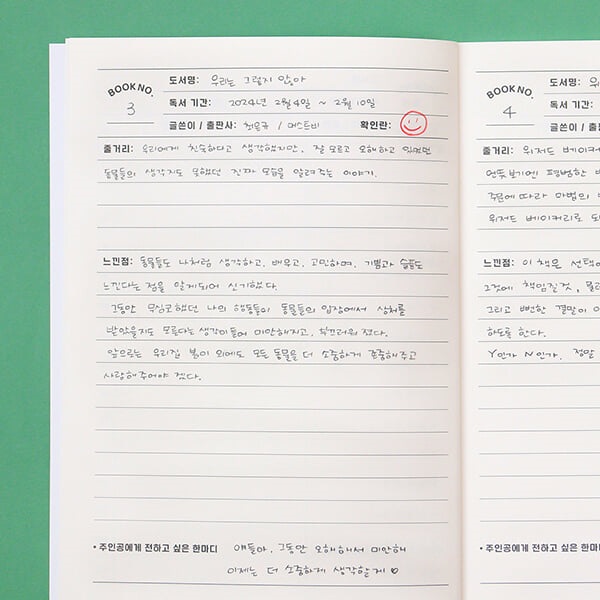 BOOK NO. 3
도서명: 우리는 그렇지 않아
독서 기간: 2024년 2월 4일 ~ 2월 10일
글쓴이 / 출판사: 최은규 / 머스트비 확인란:
줄거리: 우리에게 친숙하다고 생각했지만, 잘 모르고 오해하고 있었던
동물들의 생각지도 못했던 진짜 모습을 알려주는 이야기.
느낀점: 동물들도 나처럼 생각하고, 배우고, 고민하며, 기쁨과 슬픔도
느낀다는 점을 알게되어 신기했다.
그동안 무심코했던 나의 행동들이 동물들의 입장에서 상처를
받았을지도 모른다는 생각이들어 미안해지고, 부끄러워 졌다.
앞으로는 우리집 봉이 외에도 모든 동물을 더 소중하게 존중해주고
사랑해주어야 겠다.
• 주인공에게 전하고 싶은 한마디 얘들아, 그동안 오해해서 미안해
이제는 더 소중하게 생각할게 ♡
BOOK NO. 4
도서명:
독서 기간:
글쓴이 / 출판사:
줄거리: 위저드 베이커
언뜻보기엔 평범한
주문에 따라 마법의
위저드 베이커리로
느낀점: 이 책은 선택에
그것에 책임질것,
그리고 뻔한 결말이
하도록 한다.
Y인가 N인가. 정말
• 주인공에게 전하고 싶은 한마디